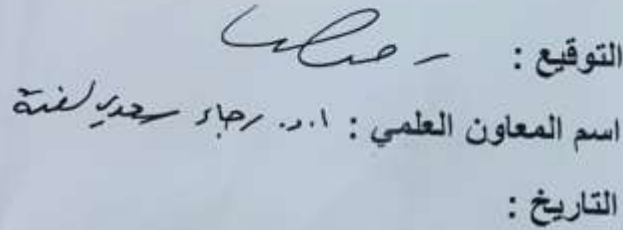 التوقيع :
اسم المعاون العلمي : ا.د. رجاء سعدي لفتة
التاريخ :